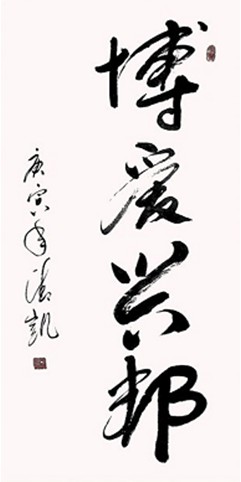 博爱兴邦
庚寅年 凯